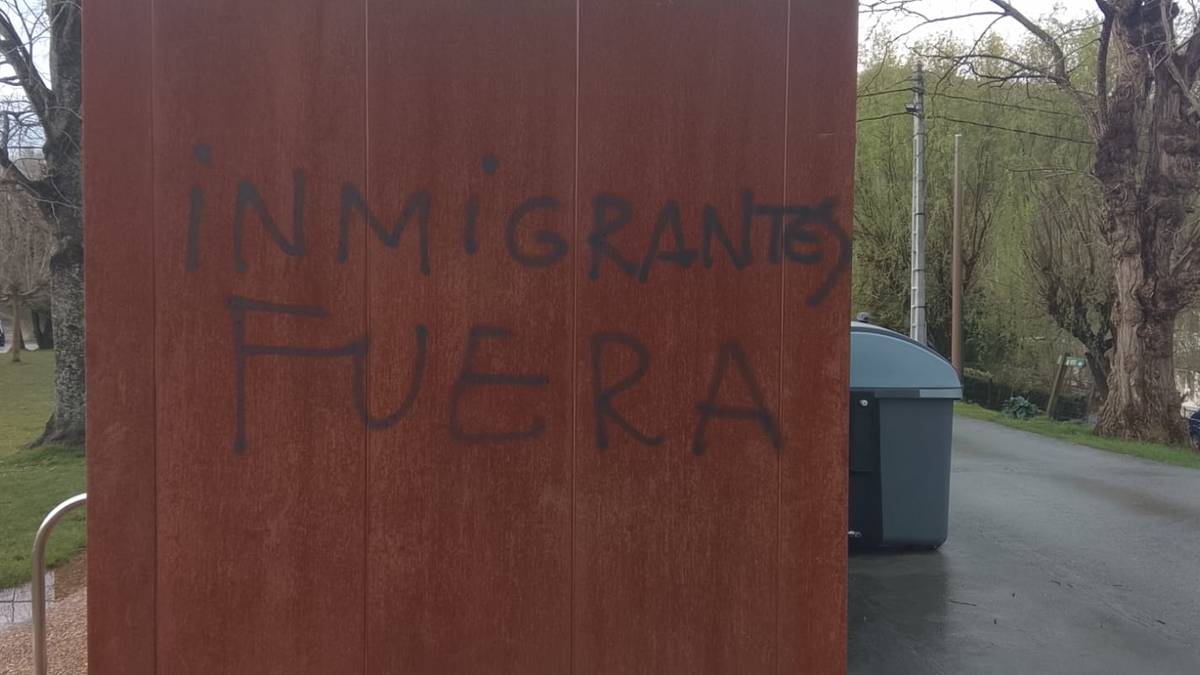 iNMiGRANTES
FUERA